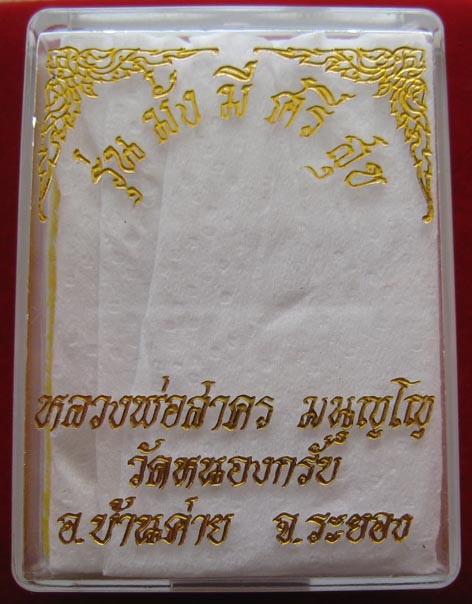 รุ่น มั่ง มี ศรี สุข
หลวงพ่อสาคร มนุญฺโญ
วัดหนองกรับ
อ.บ้านค่าย จ.ระยอง